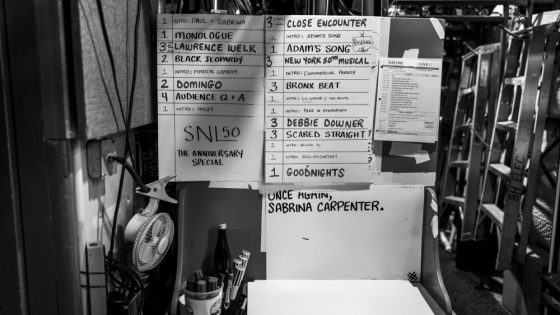 1 INTRO: PAUL + SABRINA
1 MONOLOGUE
3 LAWRENCE WELK
2 BLACK JEOPARDY
1 INTRO: PHYSICAL COMEDY
2 DOMINGO
4 AUDIENCE Q+A
1 INTRO: MILEY
SNL50
THE ANNIVERSARY
SPECIAL
3 CLOSE ENCOUNTER
1 INTRO: ADAM'S SONG
1 ADAM'S SONG
3 NEW YORK 50TH MUSICAL
1 INTRO: COMMERCIAL PARODY
3 BRONX BEAT
1 INTRO: LIL WAYNE /
1 INTRO: IN MEMORIAM
3 DEBBIE DOWNER
3 SCARED STRAIGHT!
1 INTRO:
1 INTRO: PAUL MCCARTNEY
1 GOODNIGHTS
ONCE AGAIN,
SABRINA CARPENTER.
8H ELEC